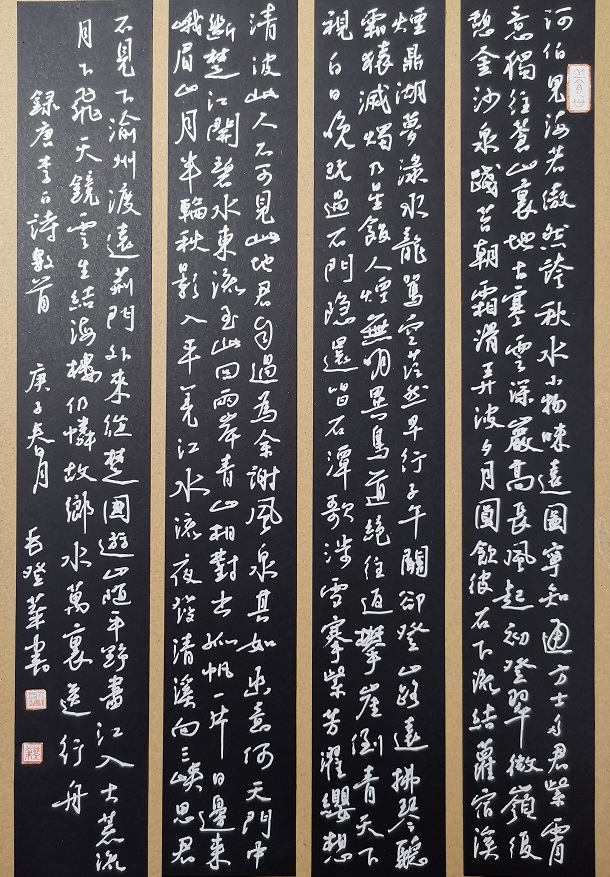 河伯見海若傲然誇秋水小物昧遠圖寧知通方士多君紫霄
意獨往蒼山裏地古寒雲深巖高長風起初登翠微嶺復
憩金沙泉踐苔朝霜滑弄波夕月圓飲彼石下流結蘿宿溪
煙鼎湖夢淥水龍駕空茫然早行子午關卻登山路遠拂琴聽
霜猿滅燭乃星飯人煙無明異鳥道絕往返攀崖倒青天下
視白日晚既過石門隱還唱石潭歌涉雪搴紫芳濯纓想
清波此人不可見此地君自過為余謝風泉其如幽意何天門中
斷楚江開碧水東流至此回兩岸青山相對出孤帆一片日邊來
峨眉山月半輪秋影入平羌江水流夜發清溪向三峽思君
不見下渝州渡遠荊門外來從楚國遊山隨平野盡江入大荒流
月下飛天鏡雲生結海樓仍憐故鄉水萬裏送行舟
錄唐李白詩數首 庚子春月 登華書